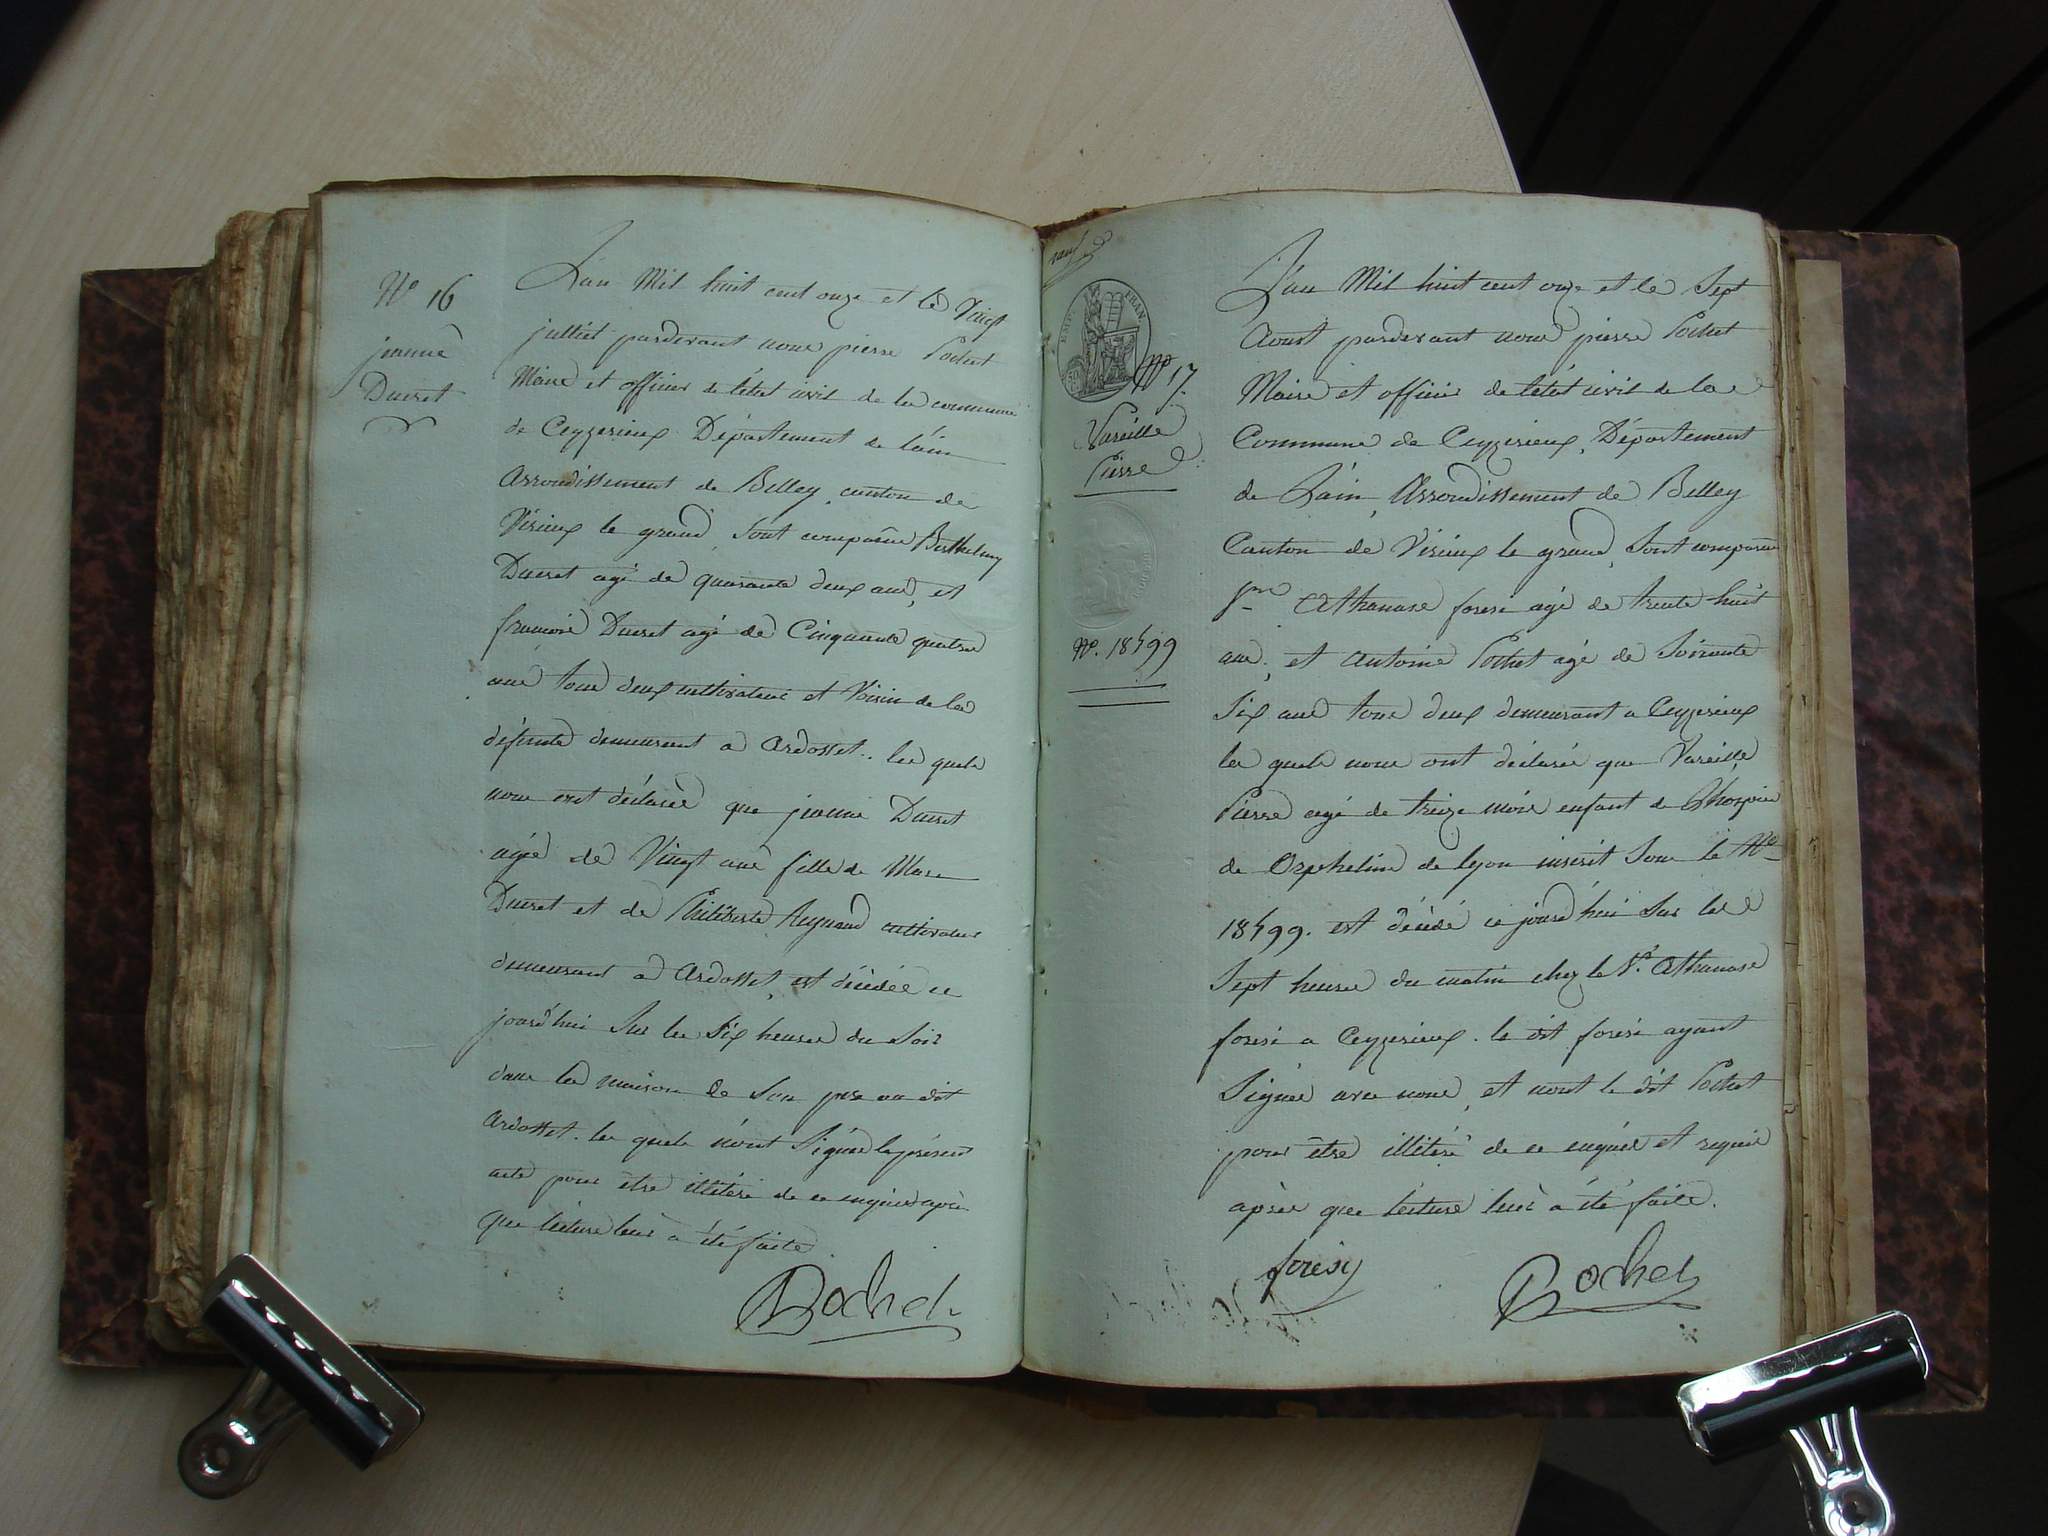 N° 16
jeanne
Ducret
L'an Mil huit cent onze et le Vingt
julliet pardevant nous pierre Pochet
Maire et officier de l'état civil de la commune
de Ceyzerieux Département de l'ain
Arrondissement de Belley, canton de
Virieux le grand, sont comparus Barthelemy
Ducret agé de quarante deux ans, et
francois Ducret agé de Cinquante quatre
ans tous deux cultivateurs et Voisin de la
défunte demeurant a Ardosset. les quels
nous ont déclarés que jeanne Ducret
agée de Vingt ans fille de Marc
Ducret et de Philiberte Reynaud cultivateurs
demeurant a Ardosset, est décédée ce
jourd'hui Sur les Six heures du Soir
dans la maison de Son pere au dit
Ardosset. les quels n'ont Signés le présent
acte pour être illétéré de ce enquis après
que lécture leurs a été faite.
Pochet
EMP. FRAN.
N° 17.
Vareille
Pierre
N°. 18599
L'an Mil huit cent onze et le Sept
Aoust pardevant nous pierre Pochet
Maire et officier de l'état civil de la
Commune de Ceyzerieux, Département
de L'ain, Arrondissement de Belley
Canton de Virieux le grand, Sont comparus
Athanase foresi agé de trente huit
ans, et Antoine Pochet agé de Soixante
Six ans tous deux demeurant a Ceyzerieux
les quels nous ont déclarés que Vareille
Pierre agé de treize mois enfant de L'hospice
de Orphelins de Lyon inscrit Sous le N°
18599. est décédé ce jourd'hui Sur les
Sept heures du matin chez le Sr. Athanase
foresi a Ceyzerieux. le dit foresi ayant
Signés avec nous, et nont le dit Pochet
pour être illétéré de ce enquis et requis
après que lécture leurs a été faite.
foresi
Pochet